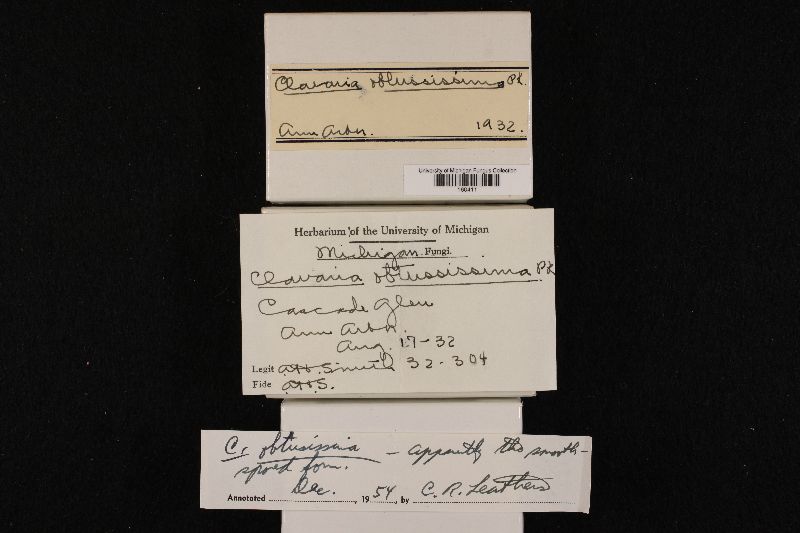 Clavaria obtusissima Pk.
Ann Arbor. 1932.
University of Michigan Fungus Collection
Herbarium of the University of Michigan
Michigan Fungi.
Clavaria obtusissima Pk
Cascade Glen
Ann Arbor.
Aug. 17-32
Legit AH. Smith 32-304
Fide AHS.
C. obtusissima – apparently the smooth-
spored form.
Dec.
Annotated , 1954, by C. R. Leathers